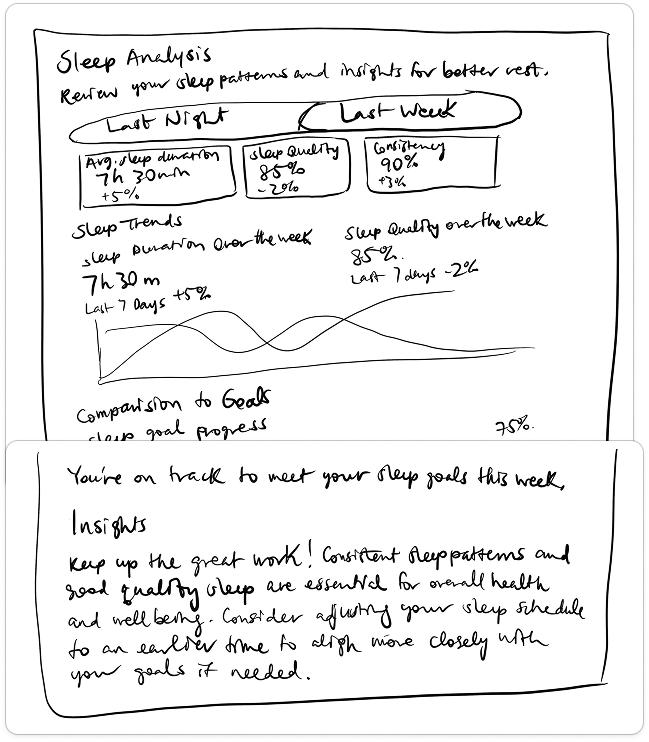 Sleep Analysis
Review your sleep patterns and insights for better rest.
Last Night
Last Week
Avg. sleep duration
7h 30min
+5%
Sleep Quality
85%
-2%
Consistency
90%
+3%
Sleep Trends
Sleep Duration Over the week
7h 30 m
Last 7 Days +5%
Sleep Quality over the week
85%.
Last 7 days -2%
Comparision to Goals
sleep goal progress
75%.
You're on track to meet your sleep goals this week,
Insights
Keep up the great work! Consistent sleep patterns and
good quality sleep are essential for overall health
and well being. Consider adjusting your sleep schedule
to an earlier time to align more closely with
your goals if needed.